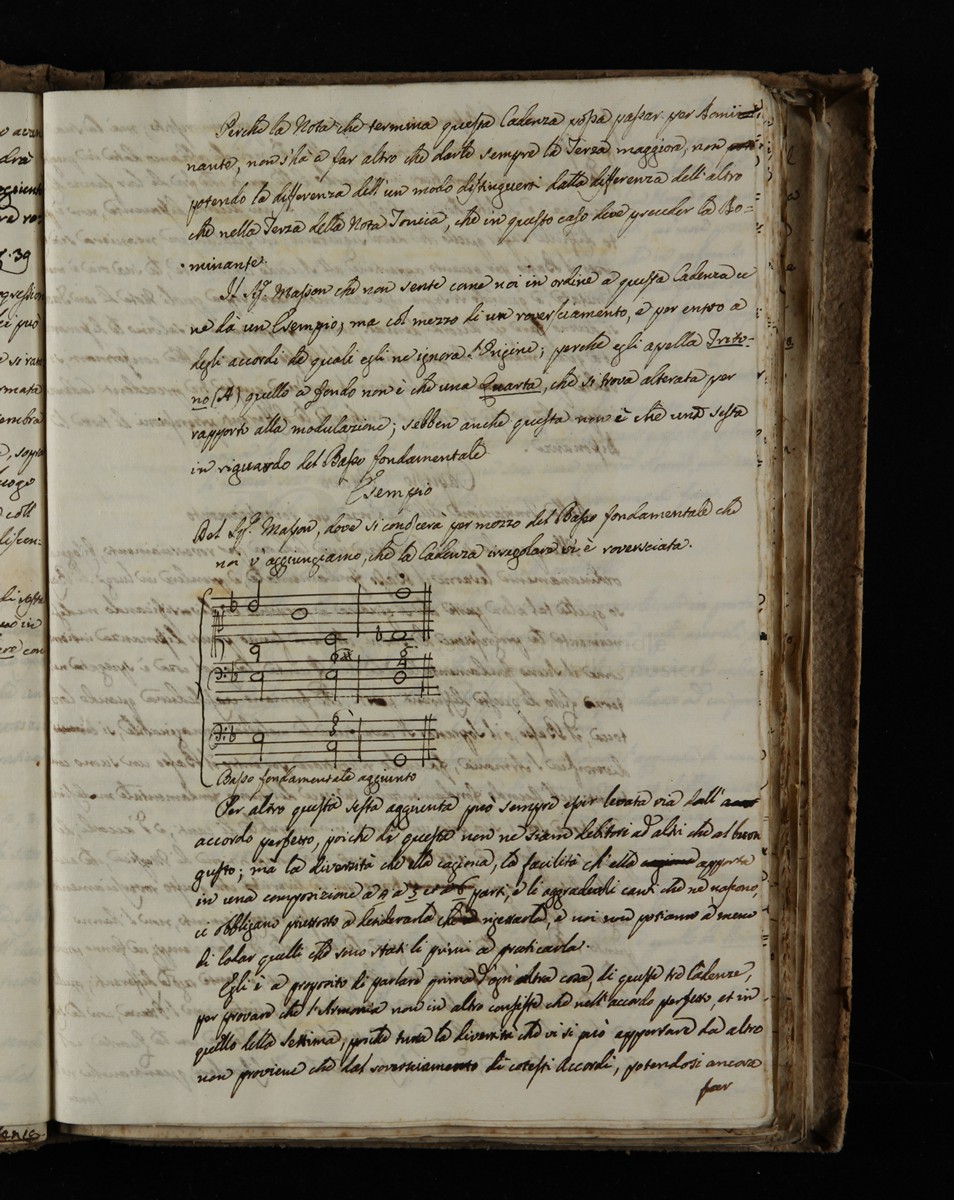 Perche la Nota che termina questa Cadenza possa passar per Domi=
nante, non s'hà a far altro che darle sempre la Terza maggiore, non
potendo la differenza dell'un modo distinguersi dalla differenza dell'altro
che nella Terza della Nota Tonica, che in questo caso deve preceder la Do=
minante.
Il Sig.r Masson che non sente come noi in ordine a questa Cadenza ce
ne dà un Esempio, ma col mezzo di un roversciamento, e per entro a
degli accordi de quali egli ne ignora l'Origine; perche egli apella Trito-
no (A) quello a fondo non è che una Quarta, che si trova alterata per
rapporto alla modulazione; sebben anche questa non è che una sesta
in riguardo del Basso fondamentale
Esempio
Del Sig.r Masson, dove si conoscerà per mezzo del Basso fondamentale che
noi v'aggiungiamo, che la Cadenza irregolare vi è roversciata.
Basso fondamentale aggiunto
Per altro questa sesta aggiunta può sempre esser levata via dall'
accordo perfetto, poiche di questa non ne siam debitori ad altri che al buon
gusto; mà la diversità che ella cagiona, la facilità ch'ella apporta
in una composizione a 4 a 5 parti, e li aggradevoli canti che ne nascono,
ci obbligano piuttosto a desiderarla che rigettarla, e noi non possiamo à meno
di lodar quelli che sono stati li primi a praticarla.
Egli è a proposito di parlare prima d'ogni altra cosa, di queste tre Cadenze,
per provare che l'Armonia non in altro consiste che nell'accordo perfetto, et in
quello della Settima, poiche tutta la diversità che vi si può apportare da altro
non proviene che dal roversciamento di cotesti Accordi, potendosi ancora
far